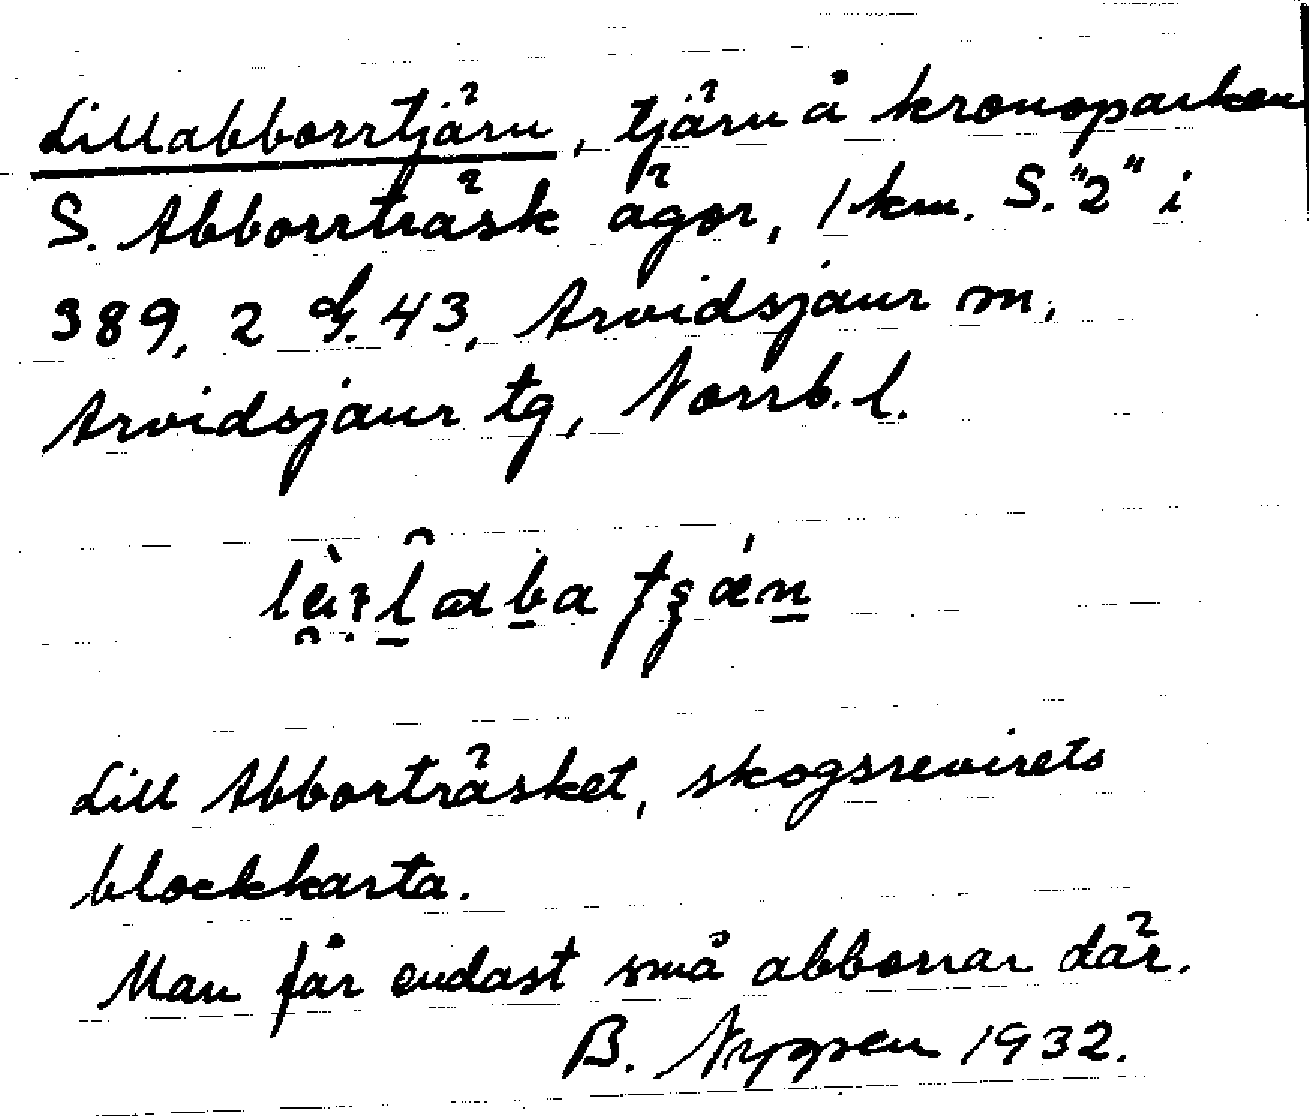 Lillabborrtjärn, tjärn å kronoparken
S. Abborrträsk ägor, 1 km. S. "2" i
389, 2 G. 43, Arvidsjaur m,
Arvidsjaur tg, Norrb. l.
Lill Abborträsket, skogsrevirets
blockkarta.
Man får endast små abborrar där.
B. Nygren 1932.